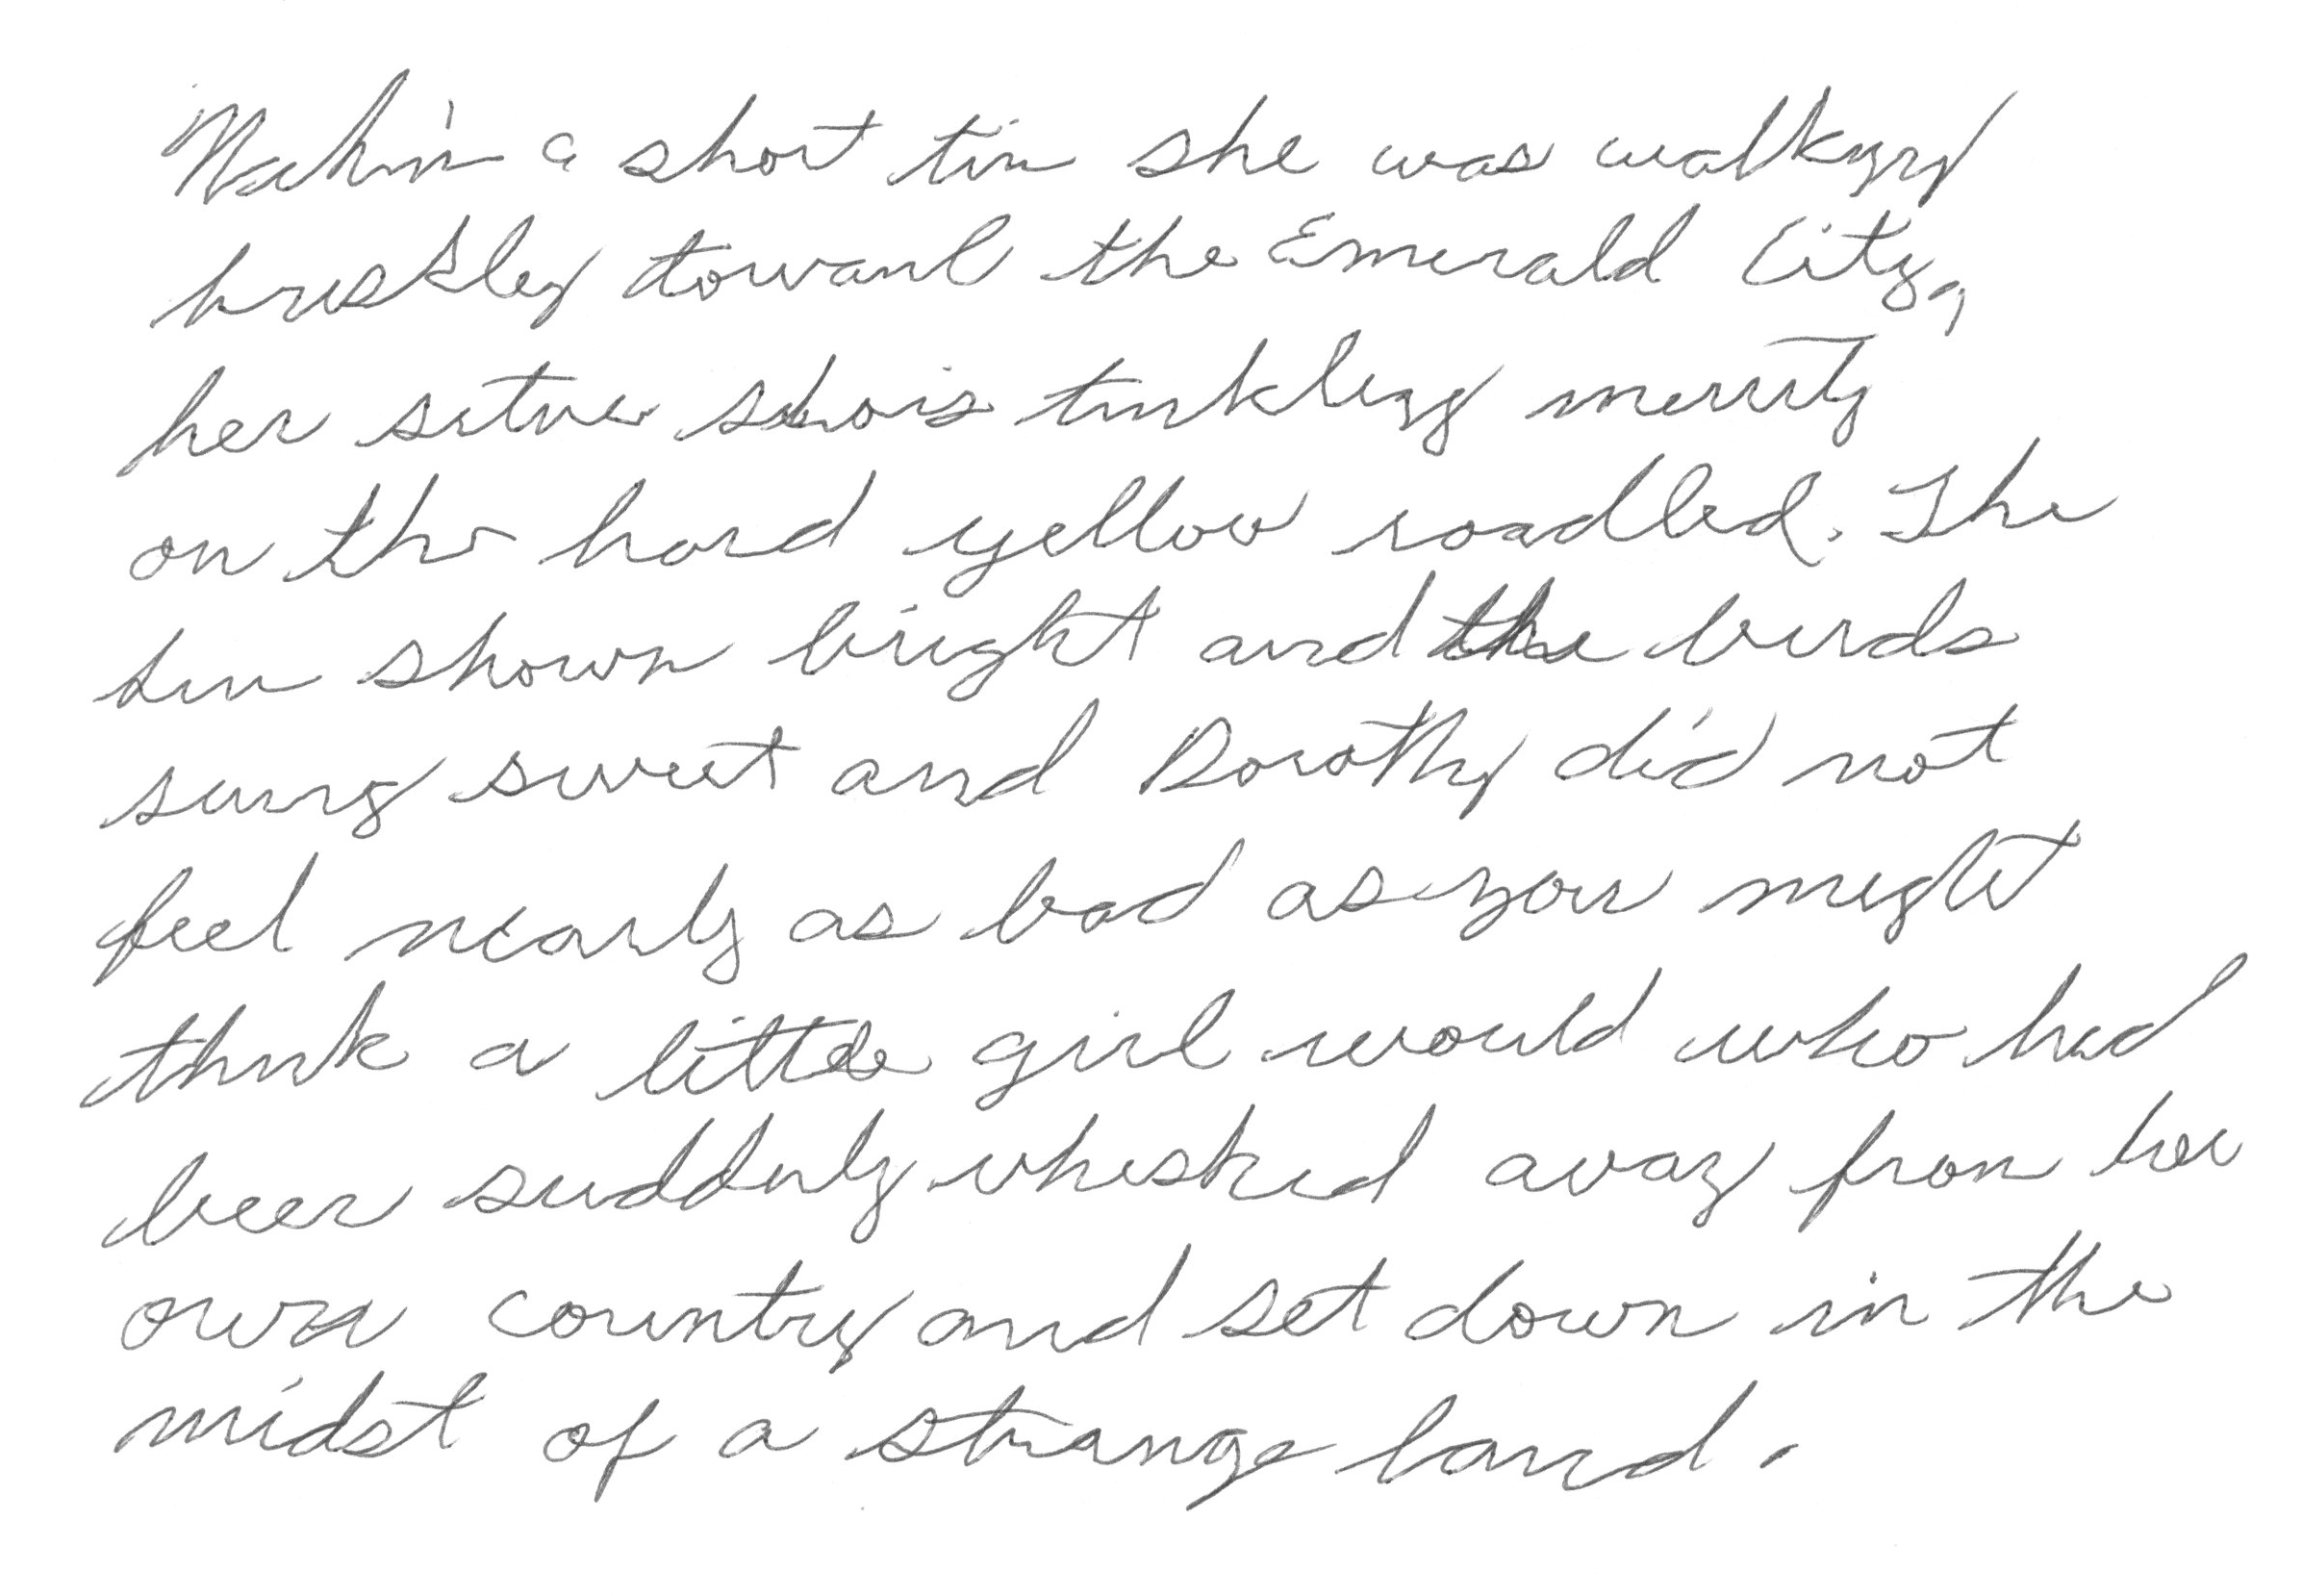 Within a short time she was walking
briskly toward the Emerald City,
her silver shoes tinkling merrily
on the hard yellow roadbed. The
sun shown bright and the birds
sung sweet and Dorothy did not
feel nearly as bad as you might
think a little girl would who had
been suddenly whisked away from her
own country and set down in the
midst of a strange land.